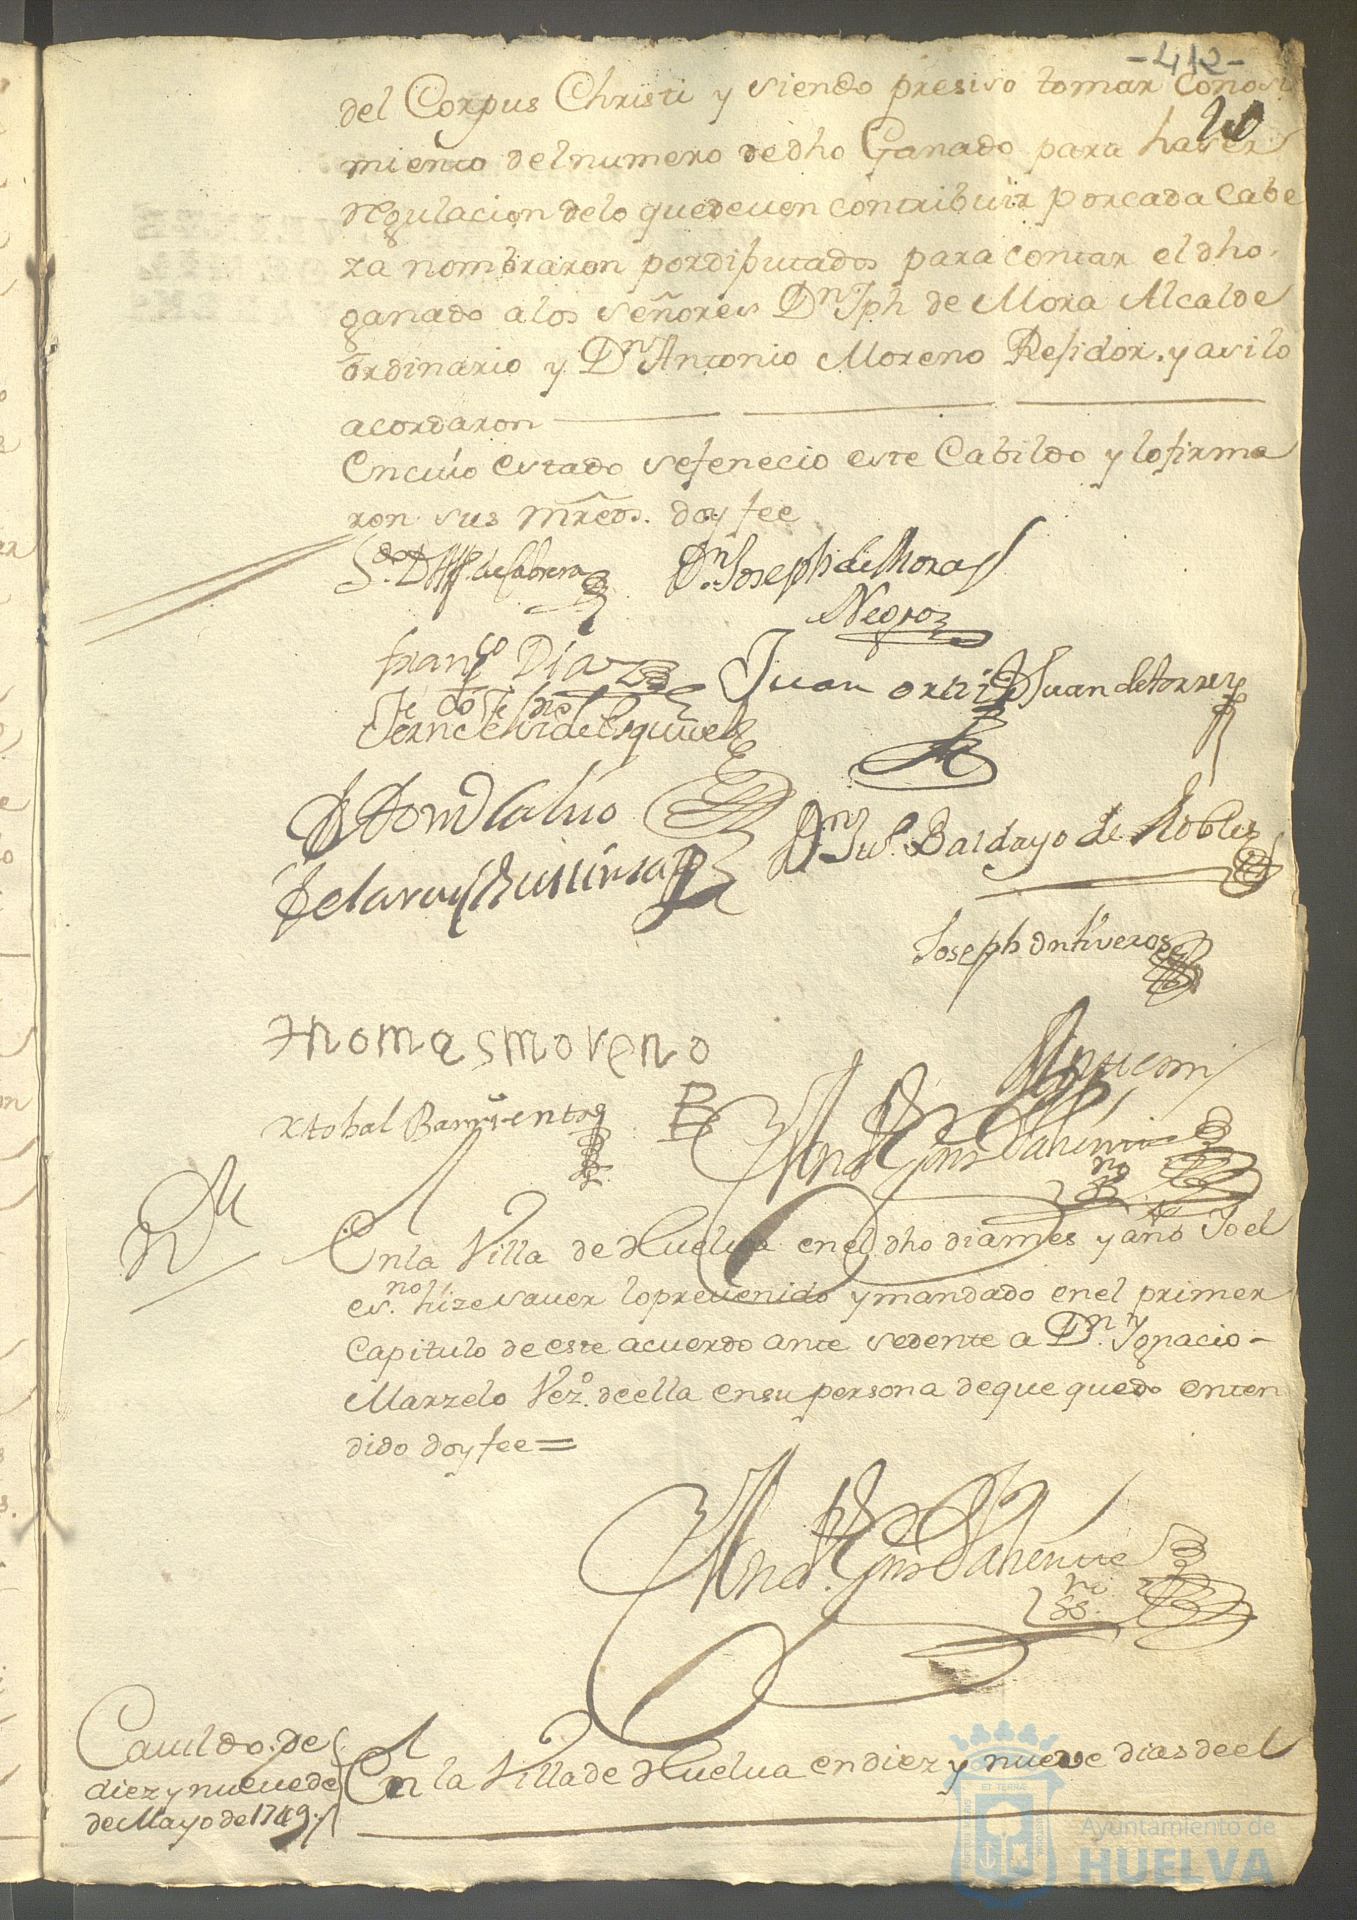 -412-
10
del Corpus Christi y siendo presiso tomar conosi
miento del numero de dho Ganado para haser
regulacion de lo que deven contribuir por cada Cabe
za nombraron por diputados para contar el dho.
ganado a los señores Dn Jph de Mora Alcalde
ordinario y Dn Antonio Moreno Residor. y asi lo
acordaron
En cuio estado se fenecio este Cabildo y lo firma
ron sus mrceds. doy fee
de Cabrera
Dn Joseph de Mora
Negro
Franco Diaz
Juan Orti
Dn Juan de Torres
de Esquivel
Calvo
Dn Jul. Bardayo de Robles
Joseph Ontiveros
Thomas Moreno
Xtobal Barrientos
Ante mi
En la Villa de Huelva en el dho dia mes y año Io el
es.no hize saver lo prevenido y mandado en el primer
Capitulo de este acuerdo ante sedente a Dn. Ygnacio
Marzelo Vezo. de ella en su persona de que quedo enten
dido doy fee=
Cavildo. de
diez y nueve de
de Mayo de 1749.
En la Villa de Huelva en diez y nueve dias de el
Ayuntamiento de
HUELVA